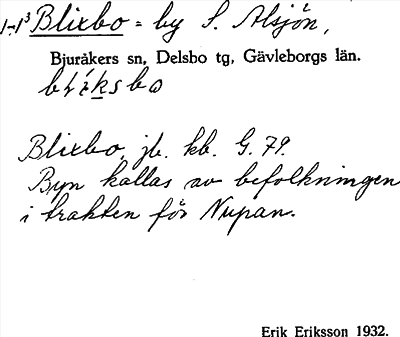 1-1³ Blixbo = by S. Alsjön,
Bjuråkers sn, Delsbo tg, Gävleborgs län.
Blixbo, jb. kb. G. 79.
Byn kallas av befolkningen
i trakten för Nupan.
Erik Eriksson 1932.